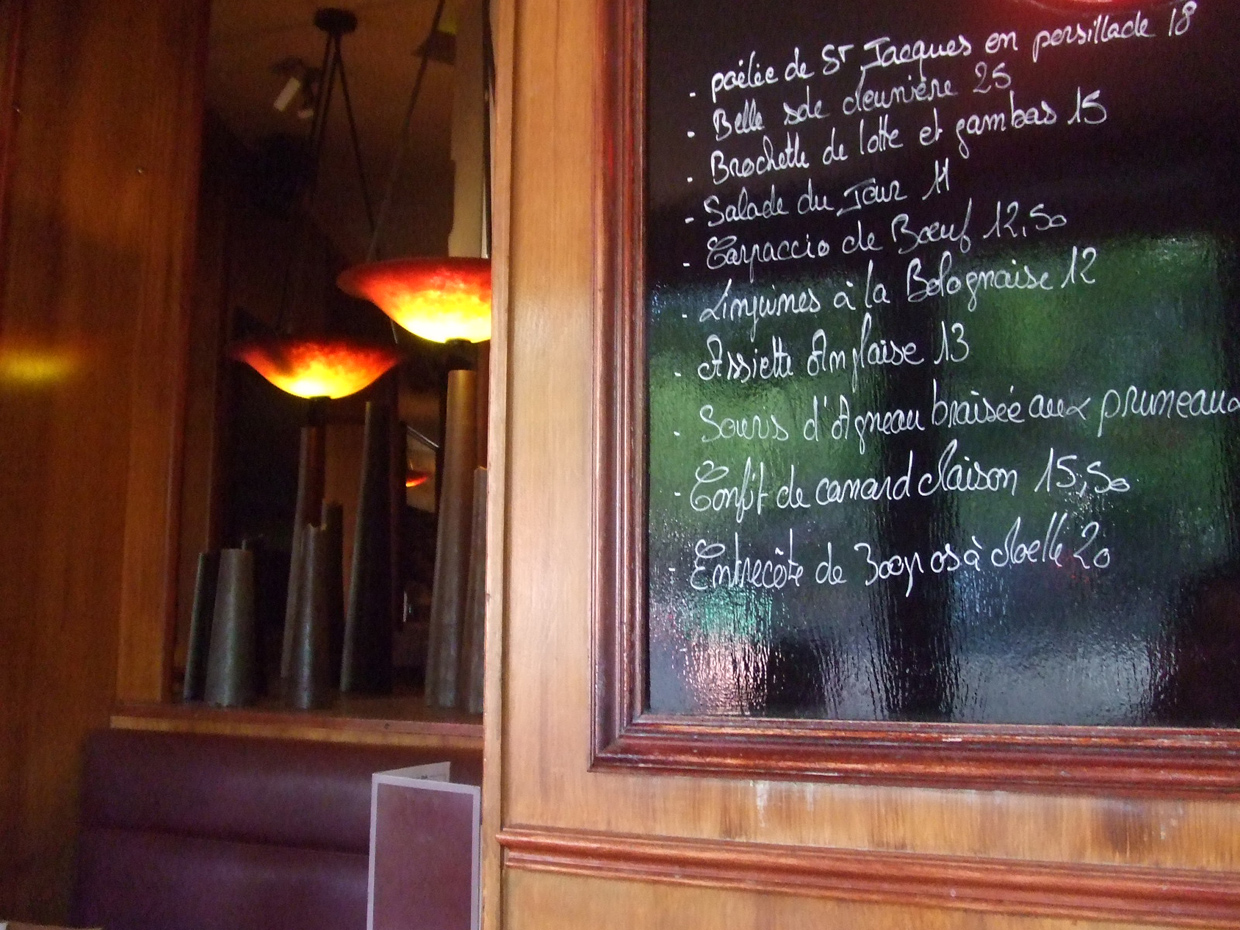 - poélée de St Jacques en persillade 18
- Belle sole meunière 25
- Brochette de lotte et gambas 15
- Salade du Jour 11
- Carpaccio de Bœuf 12,50
- Linguines à la Bolognaise 12
- Assiette Anglaise 13
- Souris d'Agneau braisée aux pruneaux
- Confit de canard Maison 15,50
- Entrecôte de 300grs à Moelle 20